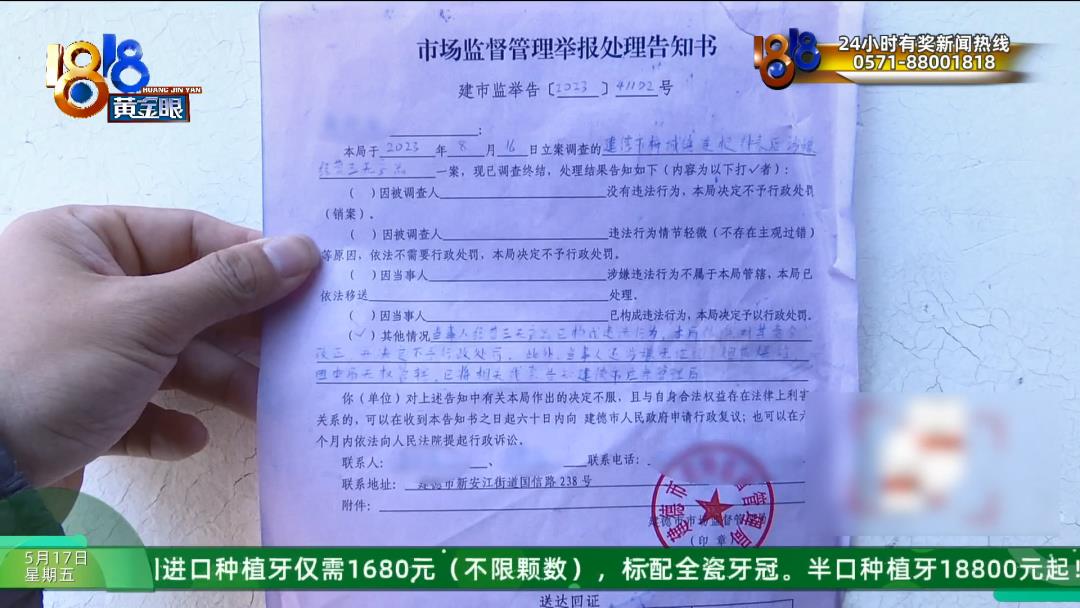 1818
HUANG JIN YAN
黄金眼
1818
24小时有奖新闻热线
0571-88001818
市场监督管理举报处理告知书
建市监举告〔2023〕41102号
:
本局于2023年8月16日立案调查的建德市梅城镇
经营三无产品一案,现已调查终结,处理结果告知如下(内容为以下打✓者):
( )因被调查人 没有违法行为,本局决定不予行政处罚
(销案)。
( )因被调查人 违法行为情节轻微(不存在主观过错)
等原因,依法不需要行政处罚,本局决定不予行政处罚。
( )因当事人 涉嫌违法行为不属于本局管辖,本局已
依法移送 处理。
( )因当事人 已构成违法行为,本局决定予以行政处罚。
(✓)其他情况当事人经营三无产品已构成违法行为,本局
改正,并决定不予行政处罚。此外,当事人还涉嫌
因本局无权管辖,已将相关线索 建德市应急管理局
你(单位)对上述告知中有关本局作出的决定不服,且与自身合法权益存在法律上利害
关系的,可以在收到本告知书之日起六十日内向 建德市人民政府申请行政复议;也可以在六
个月内依法向人民法院提起行政诉讼。
联系人: 、 联系电话:
联系地址: 建德市新安江街道国信路238号
附件:
建德市市场监督管理局
(印章)
送达回证
5月17日
星期五
进口种植牙仅需1680元(不限颗数),标配全瓷牙冠。半口种植牙18800元起!